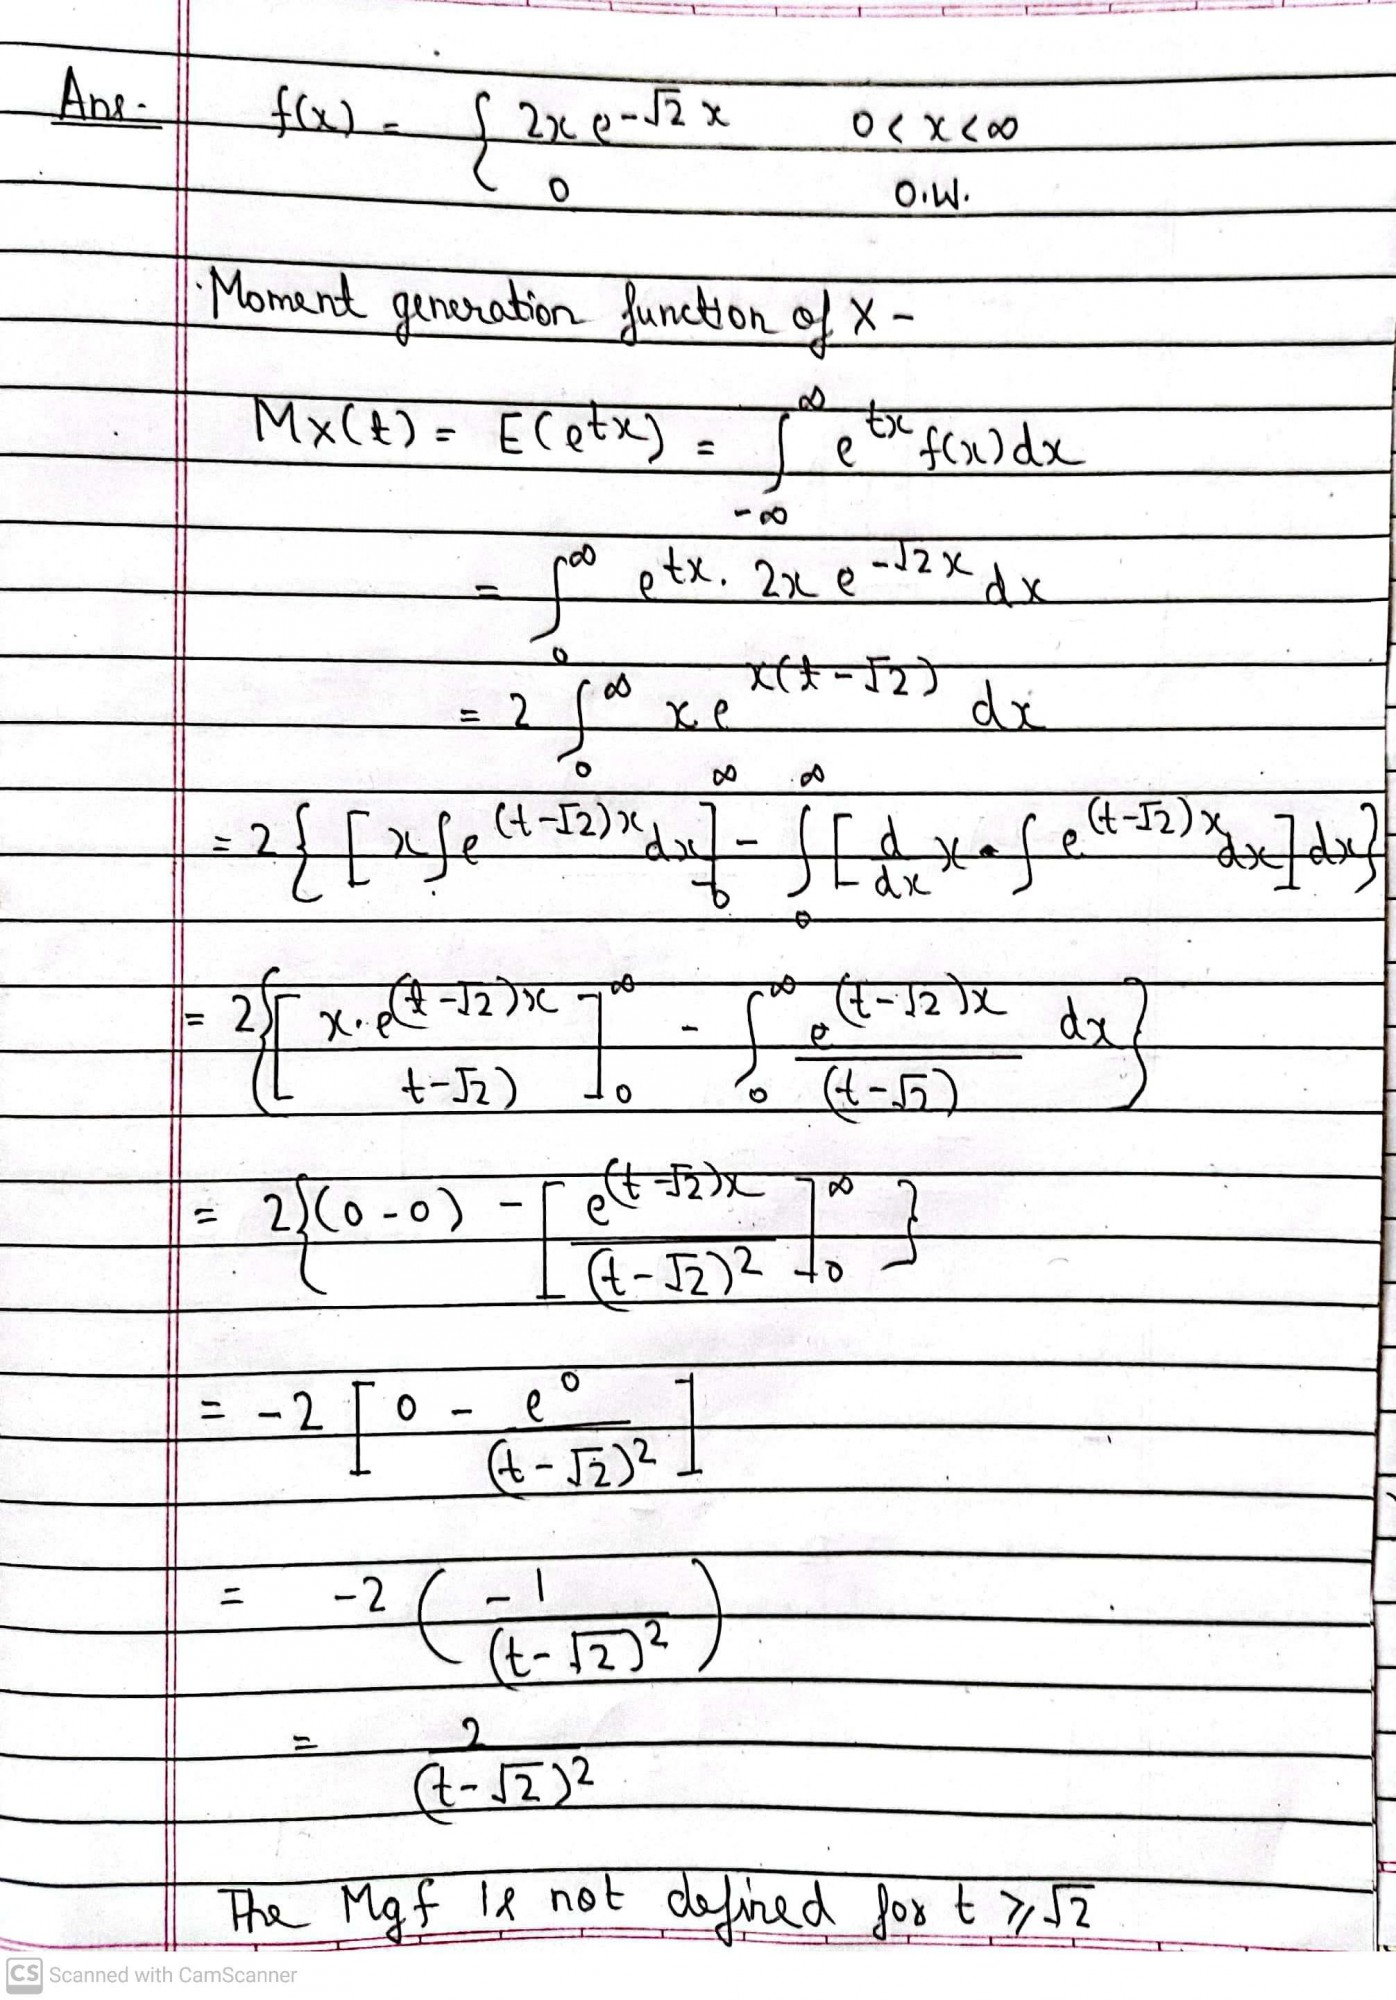 Ans- f(x) = { 2x e^{-√2 x} 0 < x < ∞
0 O.W.
Moment generation function of X -
M_X(t) = E(e^{tx}) = ∫_{-∞}^{∞} e^{tx} f(x) dx
= ∫_0^∞ e^{tx} . 2x e^{-√2 x} dx
= 2 ∫_0^∞ x e^{x(t-√2)} dx
= 2 { [ x ∫ e^{(t-√2)x} dx ]_0^∞ - ∫_0^∞ [ d/dx x . ∫ e^{(t-√2)x} dx ] dx }
= 2 { [ x . e^{(t-√2)x} / t-√2) ]_0^∞ - ∫_0^∞ e^{(t-√2)x} / (t-√2) dx }
= 2 { (0-0) - [ e^{(t-√2)x} / (t-√2)^2 ]_0^∞ }
= -2 [ 0 - e^0 / (t-√2)^2 ]
= -2 ( -1 / (t-√2)^2 )
= 2 / (t-√2)^2
The Mgf is not defined for t ≥ √2
CS Scanned with CamScanner